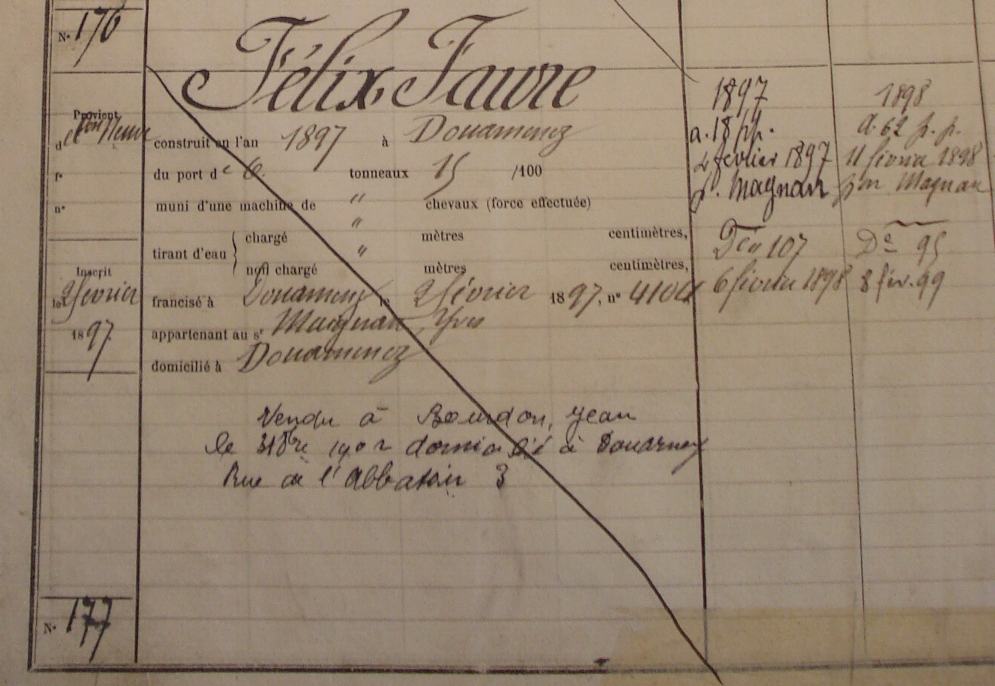 N° 176
Félix Faure
Provient
d
construit en l'an 1897 à Douarnenez
du port de 6 tonneaux 15 /100
n°
muni d'une machine de " chevaux (force effectuée)
tirant d'eau { chargé " mètres centimètres,
non chargé " mètres centimètres,
Inscrit
le 2 février
1897
francisé à Douarnenez le 2 février 1897. n°
appartenant au sr Magnan Yves
domicilié à Douarnenez
Vendu à Bourdon, Jean
le 1902 domicilié à Douarnez
Rue de l'Abbatoir 3
1897
a. 18 pp.
2 février 1897
p. Magnan
107
6 février 1898
1898
d. 62 p. p.
11 février 1898
par Magnan
De 95
8 fév. 99
N° 177